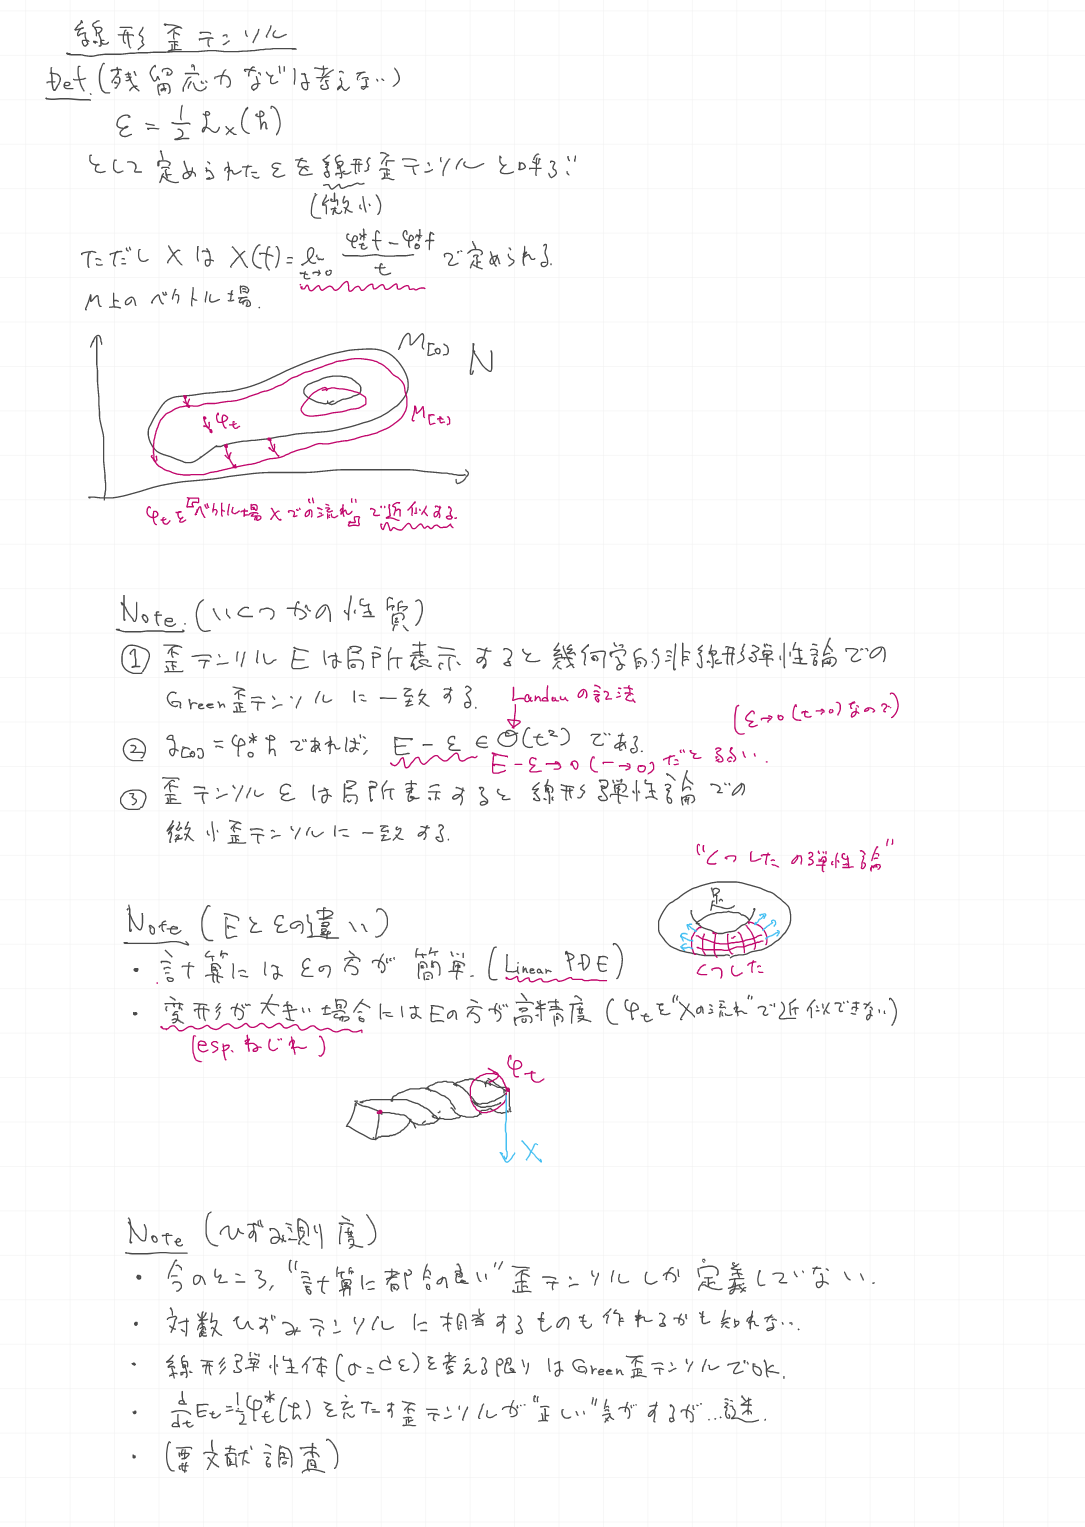 線形歪テンソル
Def.(残留応力などは考えない)
ε = 1/2 ℒx(h)
として定められたεを線形歪テンソルと呼ぶ.
(微小)
ただし X は X(f) = lim t→0 (φt*f − φ0*f)/t で定められる.
M上のベクトル場.
M[0]
N
M[t]
φt
φtを『ベクトル場Xでの"流れ"』で近似する.
Note.(いくつかの性質)
① 歪テンソル E は局所表示すると幾何学的非線形弾性論での
Green歪テンソルに一致する.
Landauの記法
(ε→0 (t→0)なので)
② g[0] = φ0*h であれば, E − ε ∈ O(t²) である.
E−ε→0 (t→0)だとゆるい.
③ 歪テンソル ε は局所表示すると線形弾性論での
微小歪テンソルに一致する.
"くつしたの弾性論"
足
くつした
Note (Eとεの違い)
・計算にはεの方が簡単. (Linear PDE)
・変形が大きい場合にはEの方が高精度 (φtを"Xの流れ"で近似できない)
(esp. ねじれ)
φt
X
Note (ひずみ測度)
・今のところ, "計算に都合の良い" 歪テンソルしか定義していない.
・対数ひずみテンソルに相当するものも作れるかも知れない.
・線形弾性体(σ=cε)を考える限りはGreen歪テンソルでOK.
・d/dt Et = 1/2 φt*(h) を充たす歪テンソルが"正しい"気がするが…謎.
・(要文献調査)